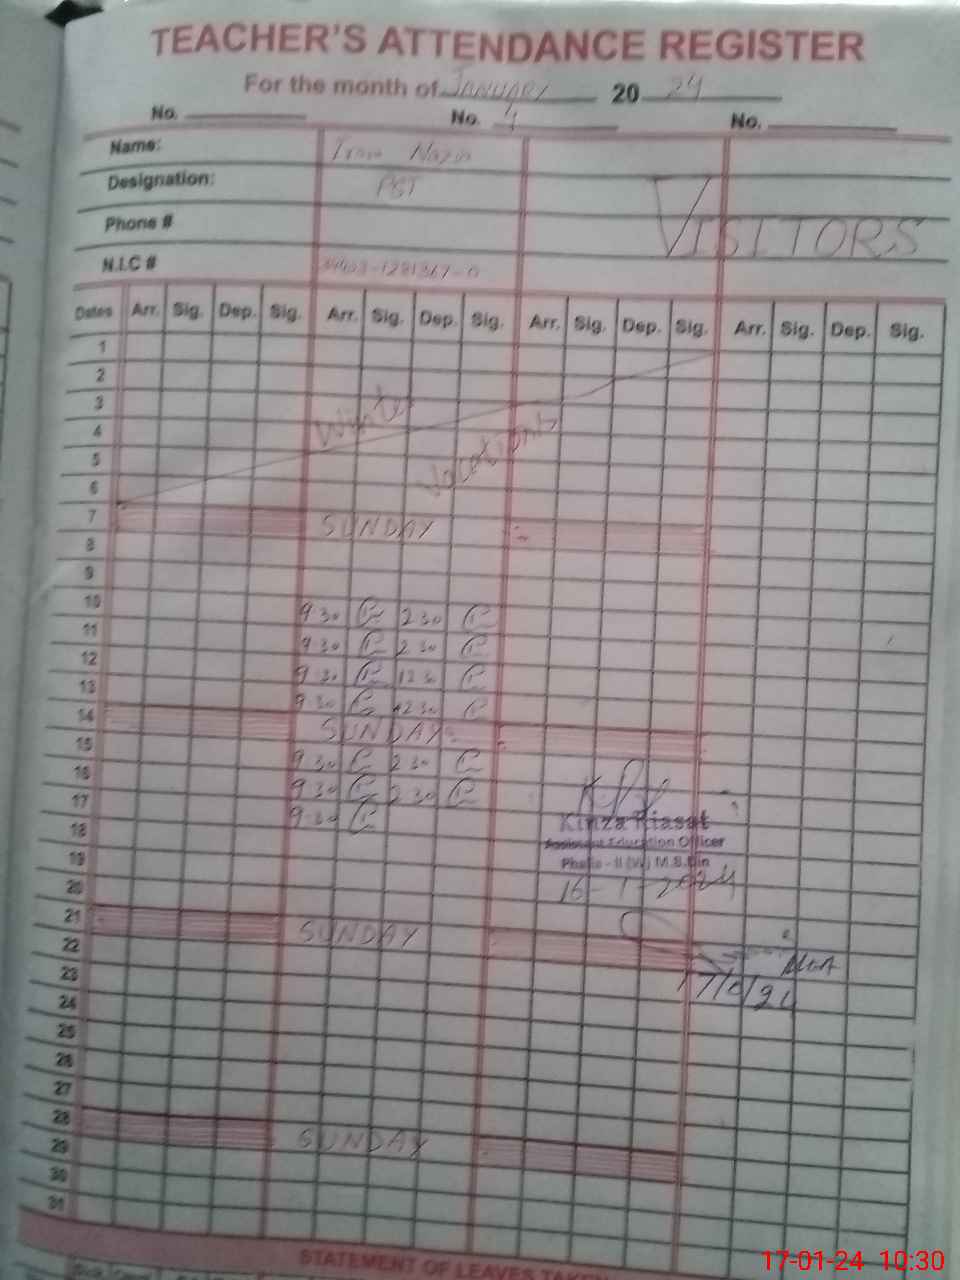 TEACHER'S ATTENDANCE REGISTER
For the month of JANUARY 20 24
No. No. 4 No.
Name: Iram Nazir
Designation: PST
Phone #
VISITORS
N.I.C #
Dates Arr. Sig. Dep. Sig. Arr. Sig. Dep. Sig. Arr. Sig. Dep. Sig. Arr. Sig. Dep. Sig.
1
2
3 Winter
4
5 Vacations
6
7 SUNDAY
8
9
10 9 30 2 30
11 9 30 2 30
12 9 30 12 30
13 9 30 12 30
14 SUNDAY
15 9 30 2 30
16 9 30 2 30
17 9 30
18 Kinza Riasat
Assistant Education Officer
19 Phalia - II (W) M.B.Din
20 16-1-2024
21 SUNDAY
22
23
24
25
26
27
28 SUNDAY
29
30
31
STATEMENT OF LEAVES TAKEN
17-01-24 10:30